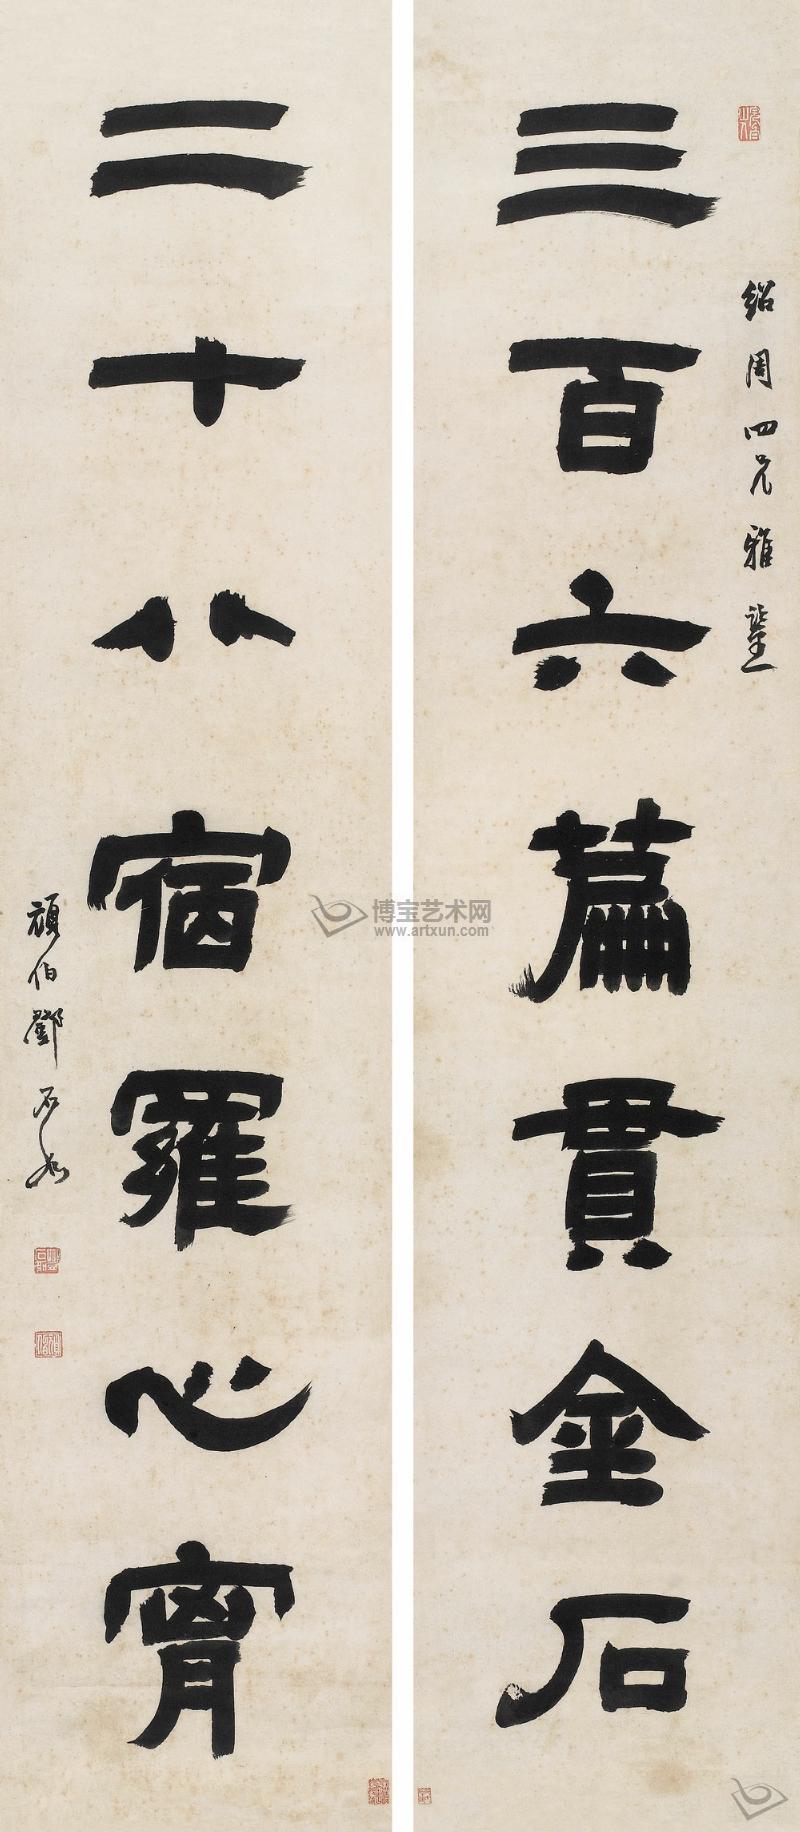 紹周四兄雅鑒
三百六篇貫金石
二十八宿羅心胷
頑伯鄧石如
博宝艺术网
www.artxun.com